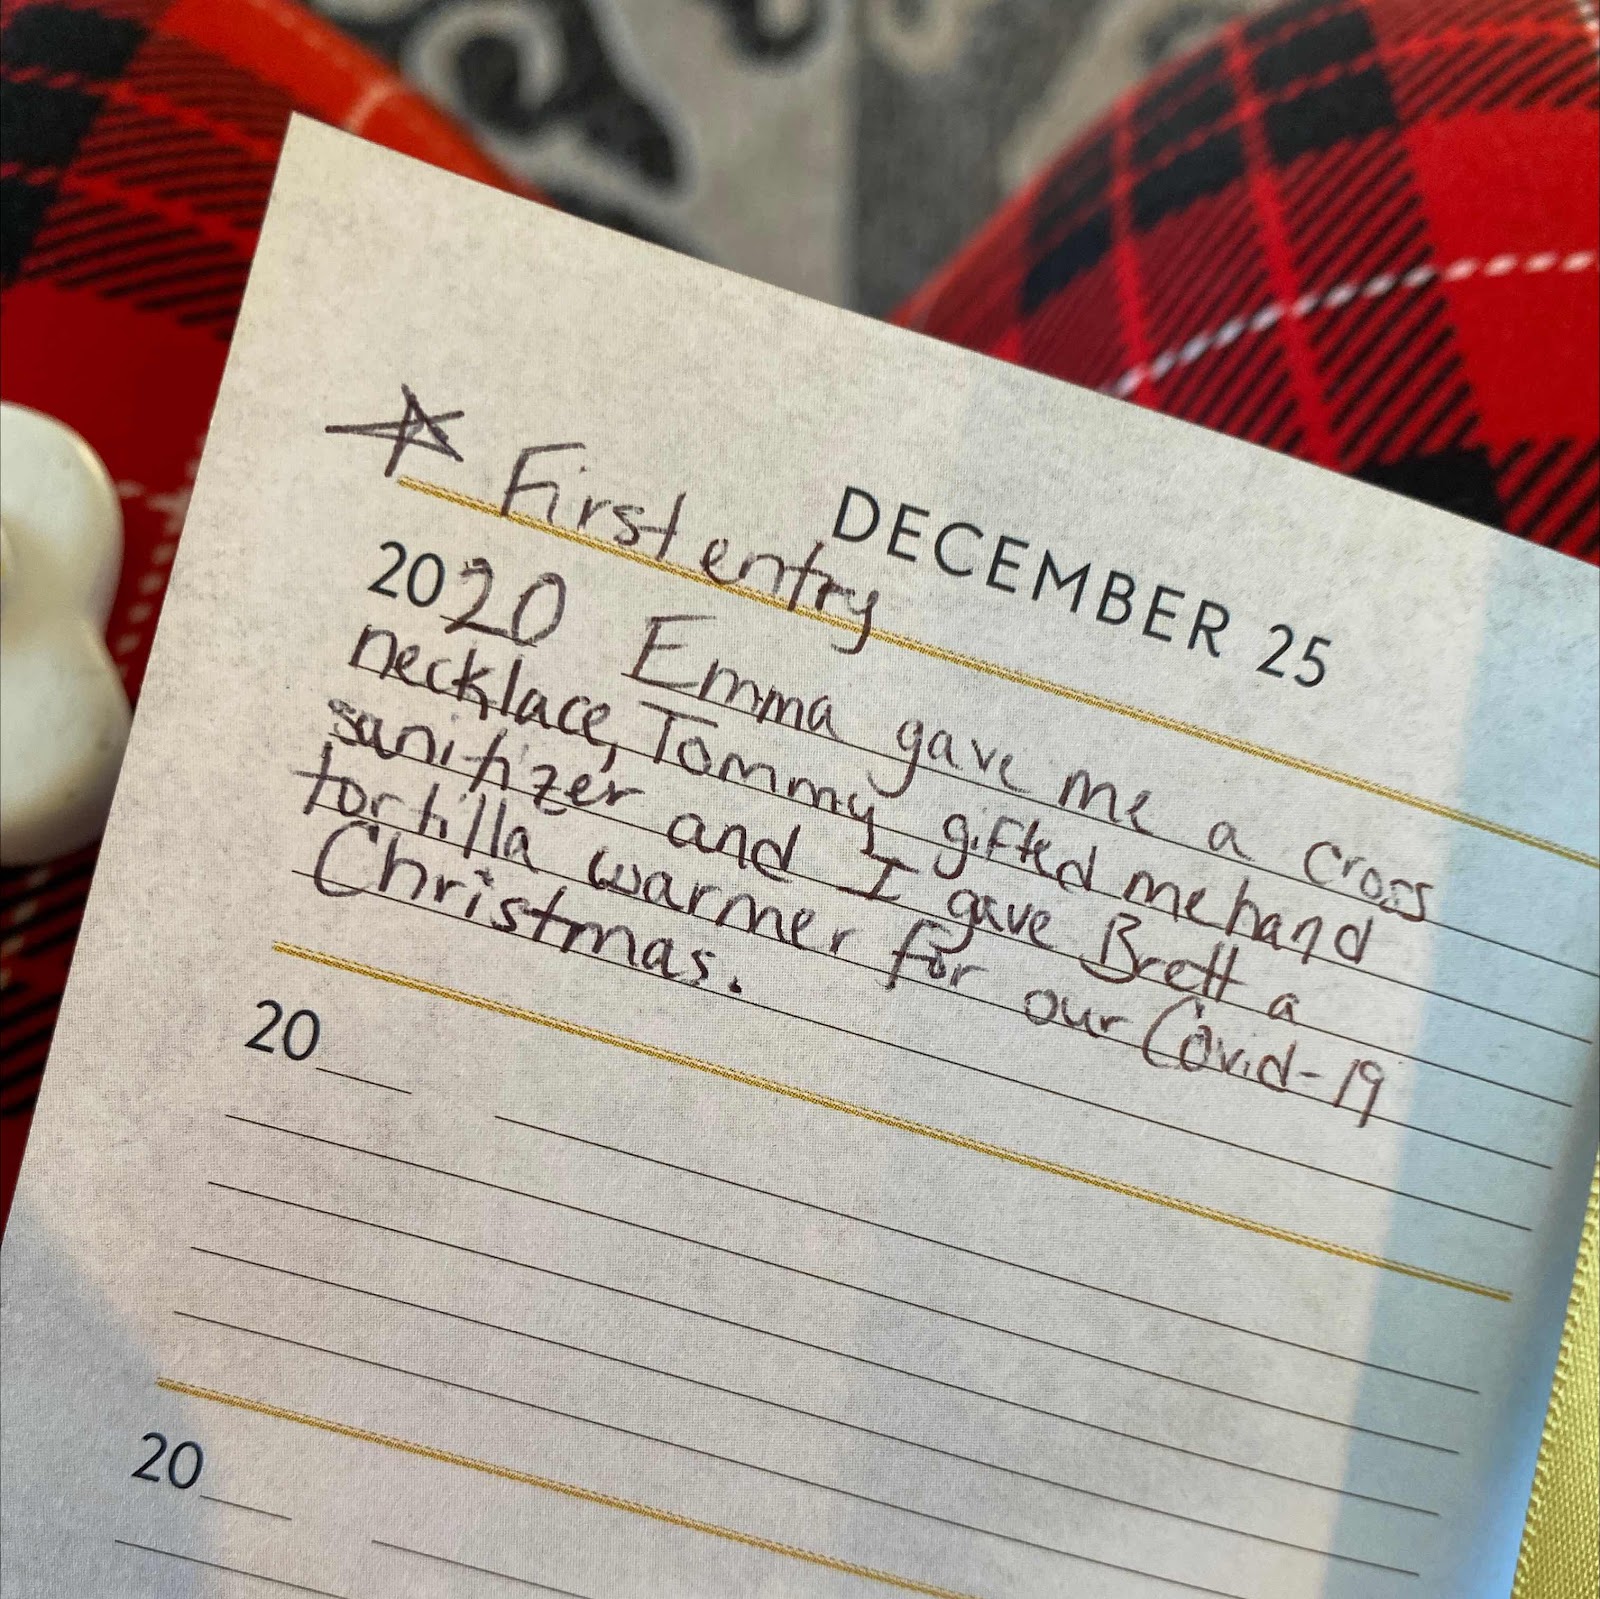 First entry
DECEMBER 25
2020 Emma gave me a cross
necklace, Tommy gifted me hand
sanitizer and I gave Brett a
tortilla warmer for our Covid-19
Christmas.
20
20